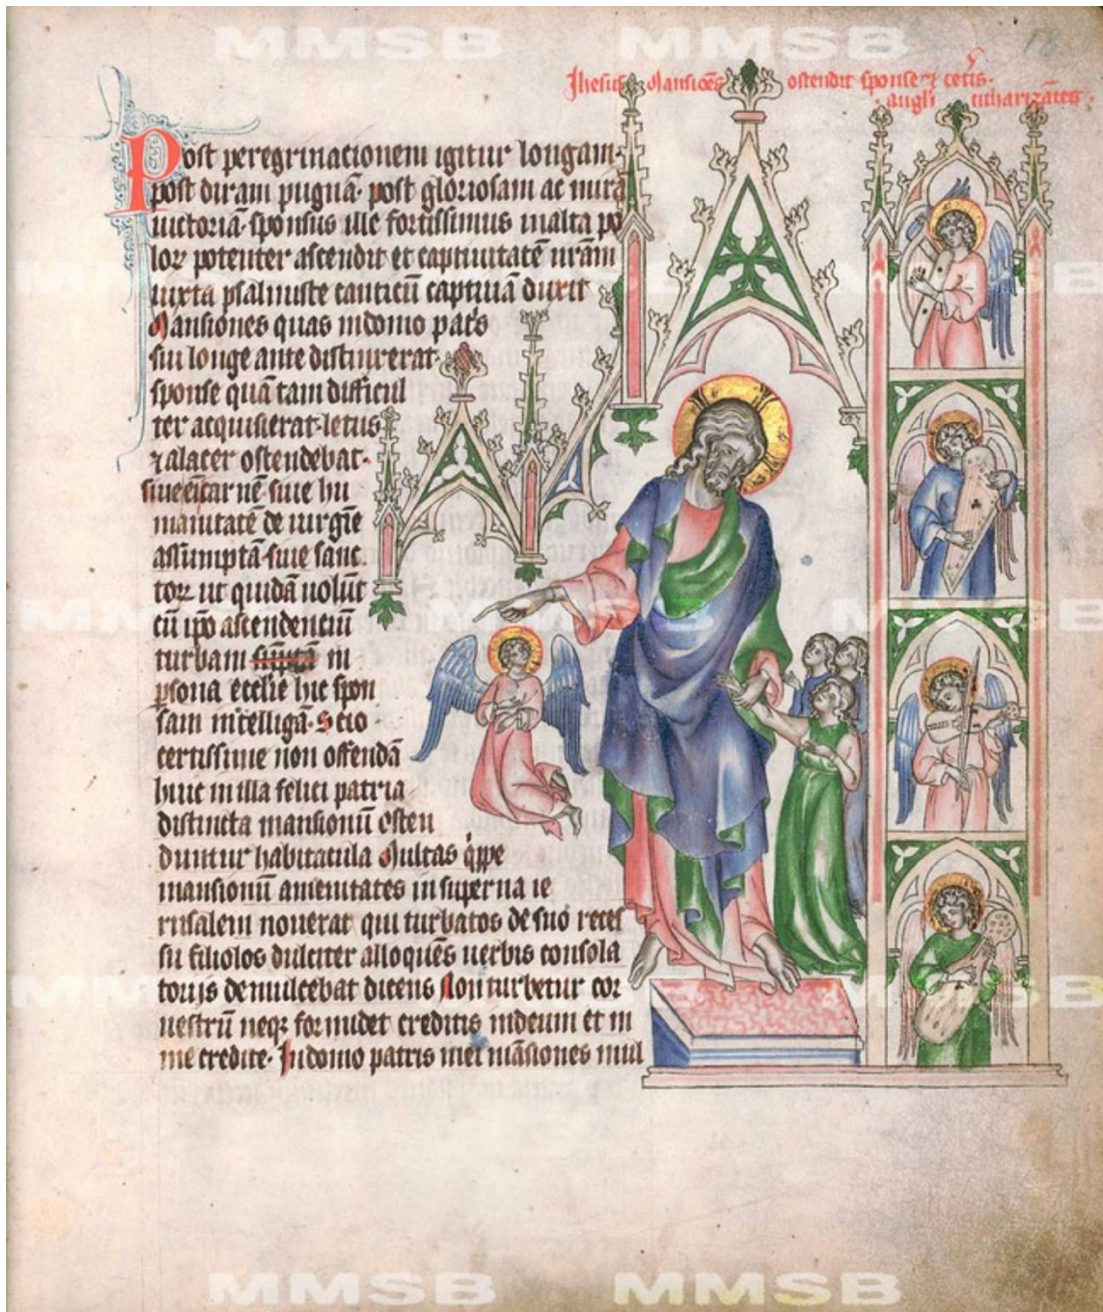 18
Jhesus Mansiões ostendit sponse ⁊ cet̕is
angl̕i citharizātes
Post peregrinationem igitur longam·
post diram pugnā· post gloriosam ac mirā
uictoriā· sponsus ille fortissimus in alta po
loꝝ potenter ascendit et captiuitatē nr̄am
iuxta psalmiste canticū captiuā duxit
Mansiones quas in domo pat̕s
sui longe ante distinxerat·
sponse quā tam difficul
ter acquisierat· letus
⁊ alacer ostendebat·
siue eī carnē· siue hu
manitatē de uirgīe
assumptā· siue sanc
toꝝ ut quidā uolūt
cū ip̄o ascendentiū
turbam in
ꝑsona ecc̄lie hic spon
sam intelligā· Scio
certissime non offendā
huic in illa felici patria
distincta mansionū osten
duntur habitacula Multas q̕ppe
mansionū amenitates in superna ie
rusalem nouerat qui turbatos de suo reces
su filiolos dulciter alloquēs uerbis consola
torijs demulcebat dicens Non turbetur cor
uestrū neqꝫ formidet creditis in deum et in
me credite· In domo patris mei māsiones mul
MMSB MMSB
MMSB MMSB
MMSB MMSB
MMSB MMSB
MMSB MMSB